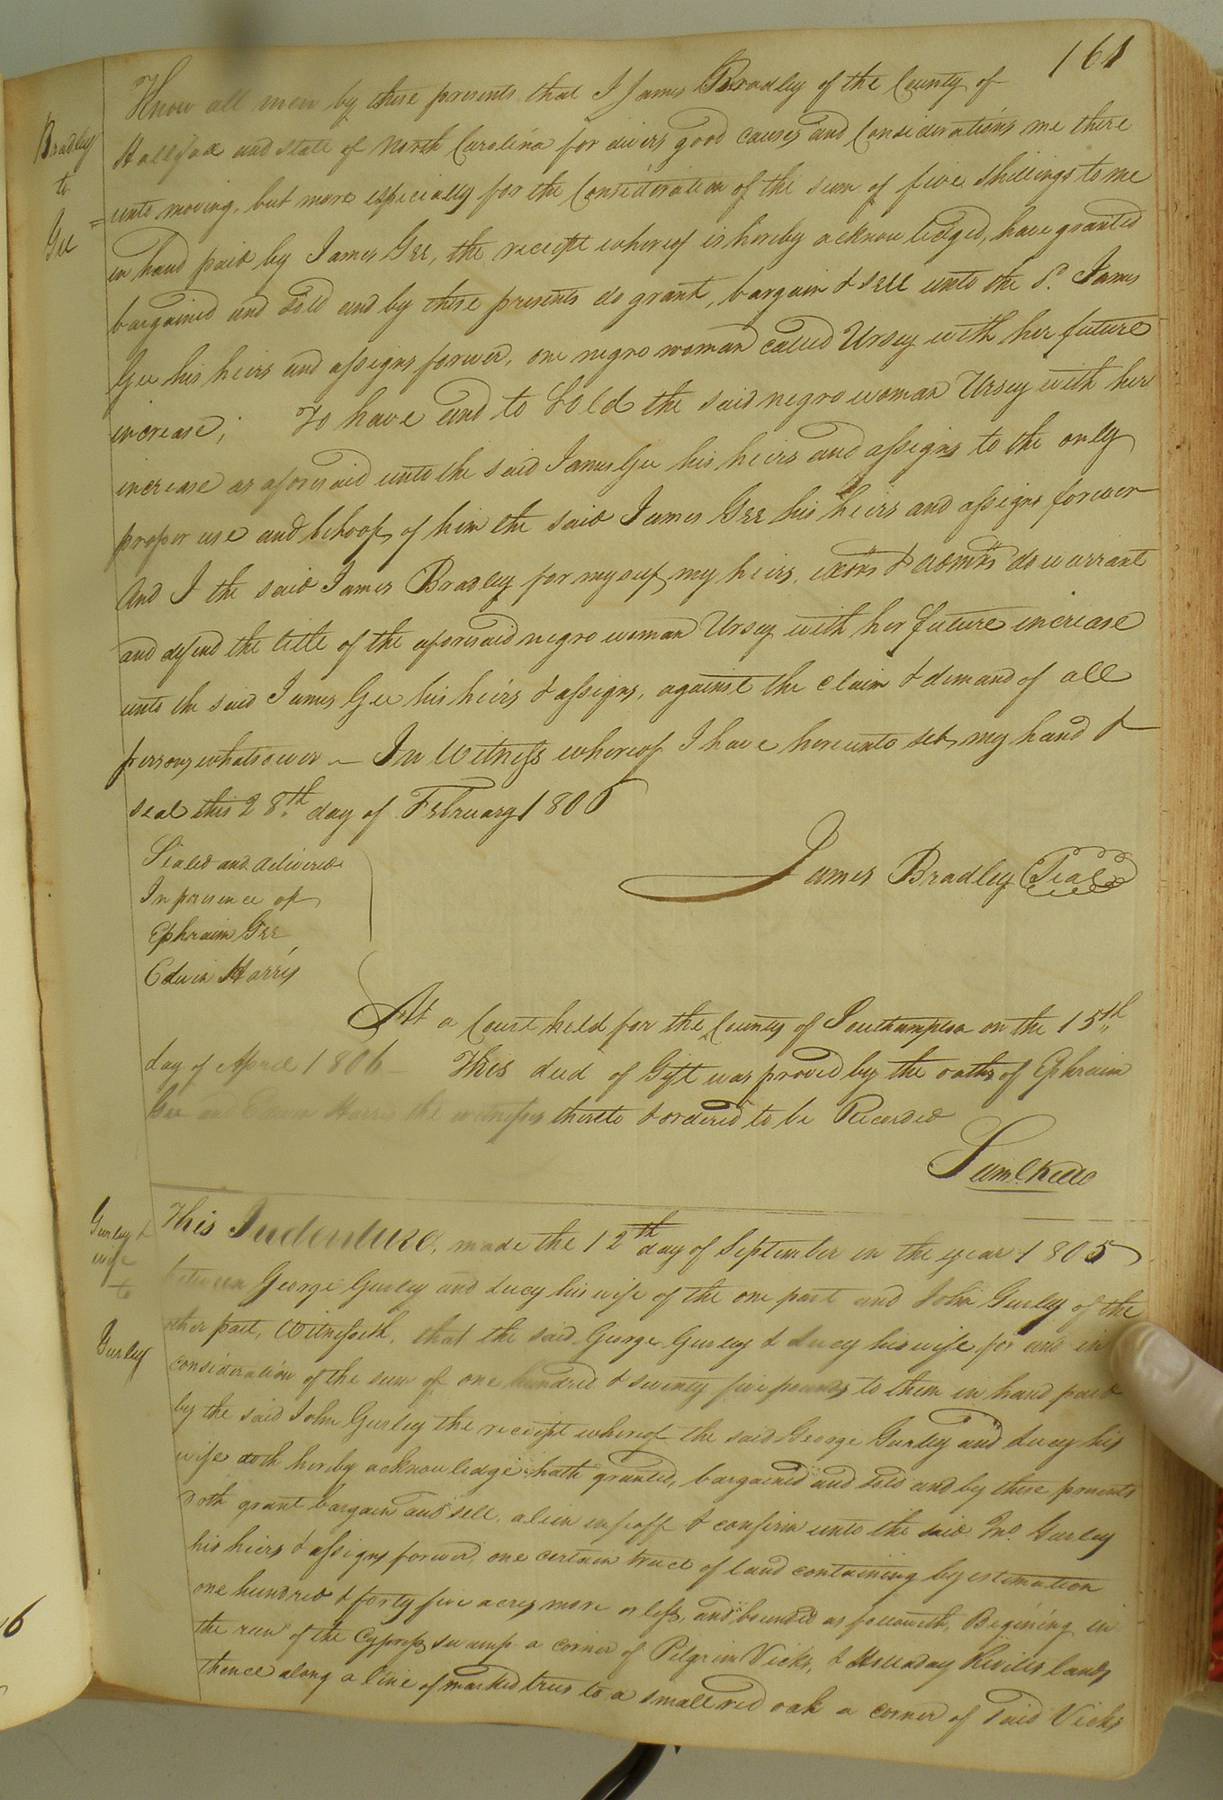 161
Bradley
to
Gee =
Know all men by these presents that I James Bradley of the County of
Hallifax and state of North Carolina for divers good causes and Considerations me there
unto moving, but more especially for the Consideration of the sum of five Shillings to me
in hand paid by James Gee, the receipt whereof is hereby acknowledged, have granted
bargained and sold and by these presents do grant, bargain & sell unto the sd. James
Gee his heirs and assigns forever, one negro woman called Ursey with her future
increase; To have and to hold the said negro woman Ursey with her
increase as aforesaid unto the said James Gee his heirs and assigns to the only
proper use and behoof of him the said James Gee his heirs and assigns forever
And I the said James Bradley for myself my heirs, exōrs & admr̄s do warrant
and defend the title of the aforesaid negro woman Ursey with her future increase
unto the said James Gee his heirs & assigns, against the claim & demand of all
persons whatsoever – In Witness whereof I have hereunto set my hand &
seal this 28th day of February 1806
James Bradley (Seal)
Sealed and delivered
In presence of
Ephraim Gee
Edwin Harris
At a Court held for the County of Southampton on the 15th
day of April 1806 – This deed of Gift was proved by the oaths of Ephraim
Gee and Edwin Harris the witnesses thereto & ordered to be Recorded
Saml Kello
Gurley &
wife
to
Gurley
This Indenture, made the 12th day of September in the year 1805
between George Gurley and Lucy his wife of the one part and John Gurley of the
other part, Witnesseth, that the said George Gurley & Lucy his wife for and in
consideration of the sum of one hundred & seventy five pounds to them in hand paid
by the said John Gurley the receipt whereof the said George Gurley and Lucy his
wife doth hereby acknowledge hath granted, bargained and sold and by these presents
doth grant bargain and sell, alien enfeoff & confirm unto the said Jno Gurley
his heirs & assigns forever, one certain tract of land containing by estimation
one hundred & forty five acres more or less, and bounded as followeth, Begining in
the run of the Cypress swamp a corner of Pilgrim Vicks, & Holladay Revills lands
thence along a line of marked trees to a small red oak a corner of said Vicks